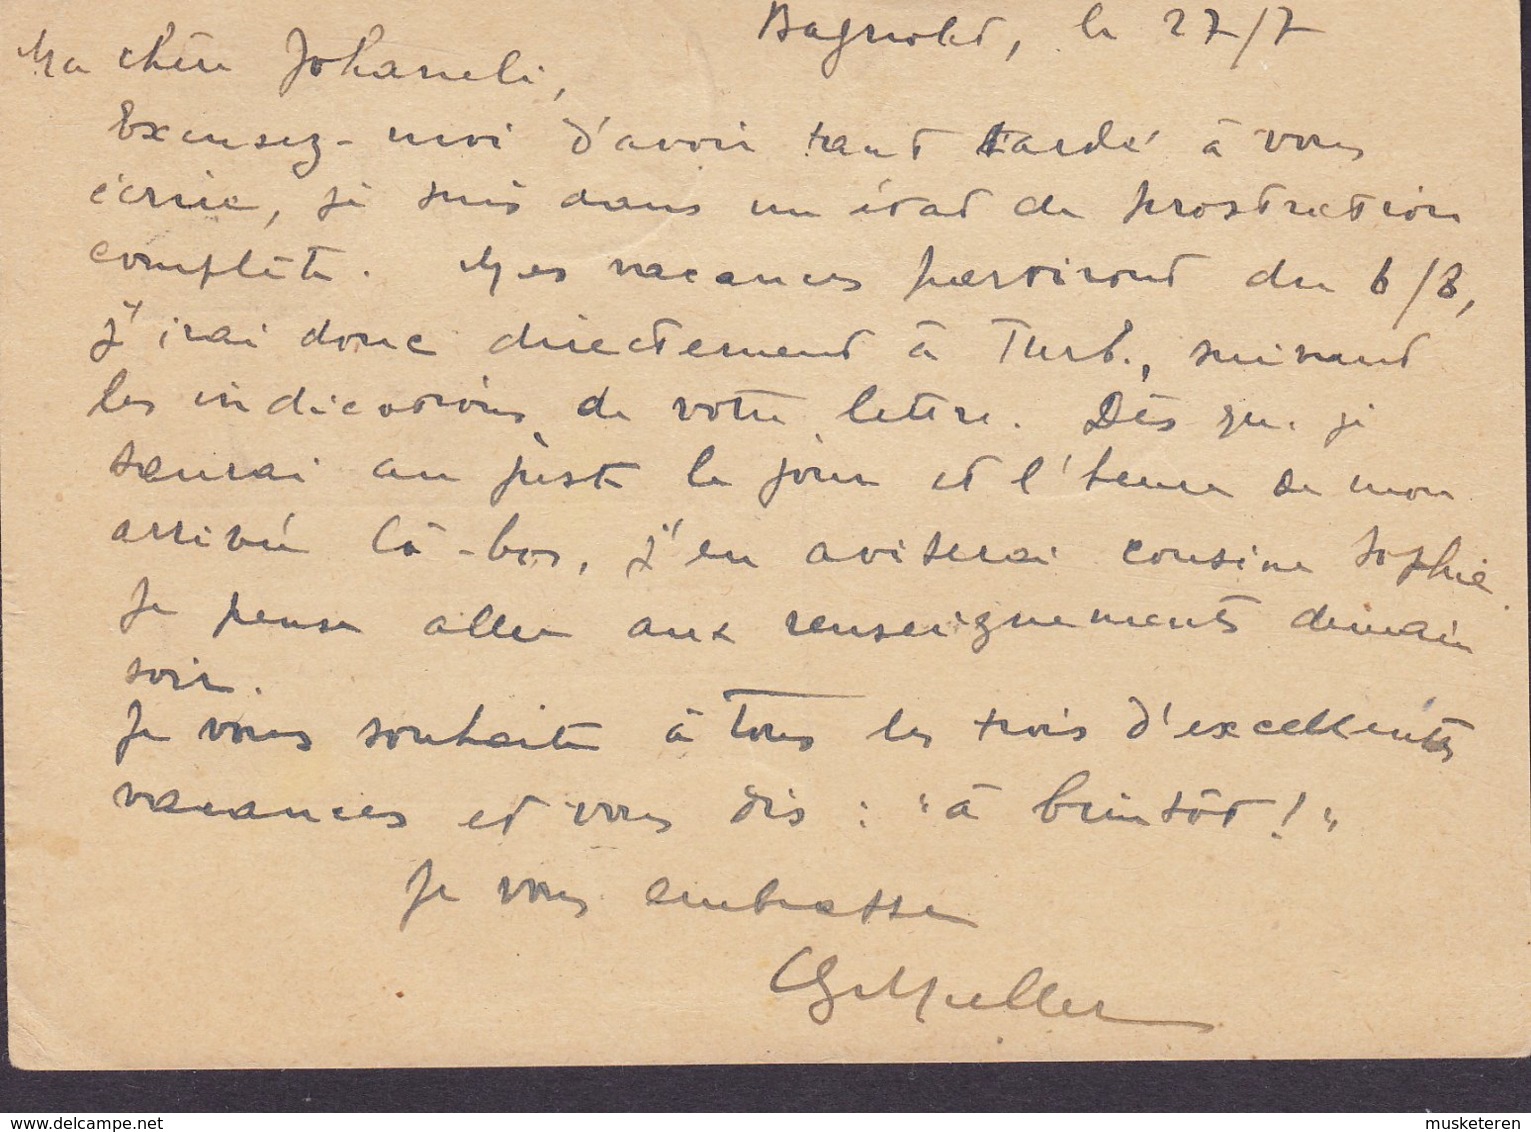 Bagnolet, le 27/7
Ma chère Johaneli,
Excusez-moi d'avoir tant tardé à vous
écrire, je suis dans un état de prostration
complète. Mes vacances partiront du 6/8,
j'irai donc directement à Turb., suivant
les indications de votre lettre. Dès que je
saurai au juste le jour et l'heure de mon
arrivée là-bas, j'en aviserai cousine Sophie.
Je pense aller aux renseignements demain
soir.
Je vous souhaite à tous les trois d'excellentes
vacances et vous dis : "à bientôt!"
Je vous embrasse
Muller
www.delcampe.net
musketeren